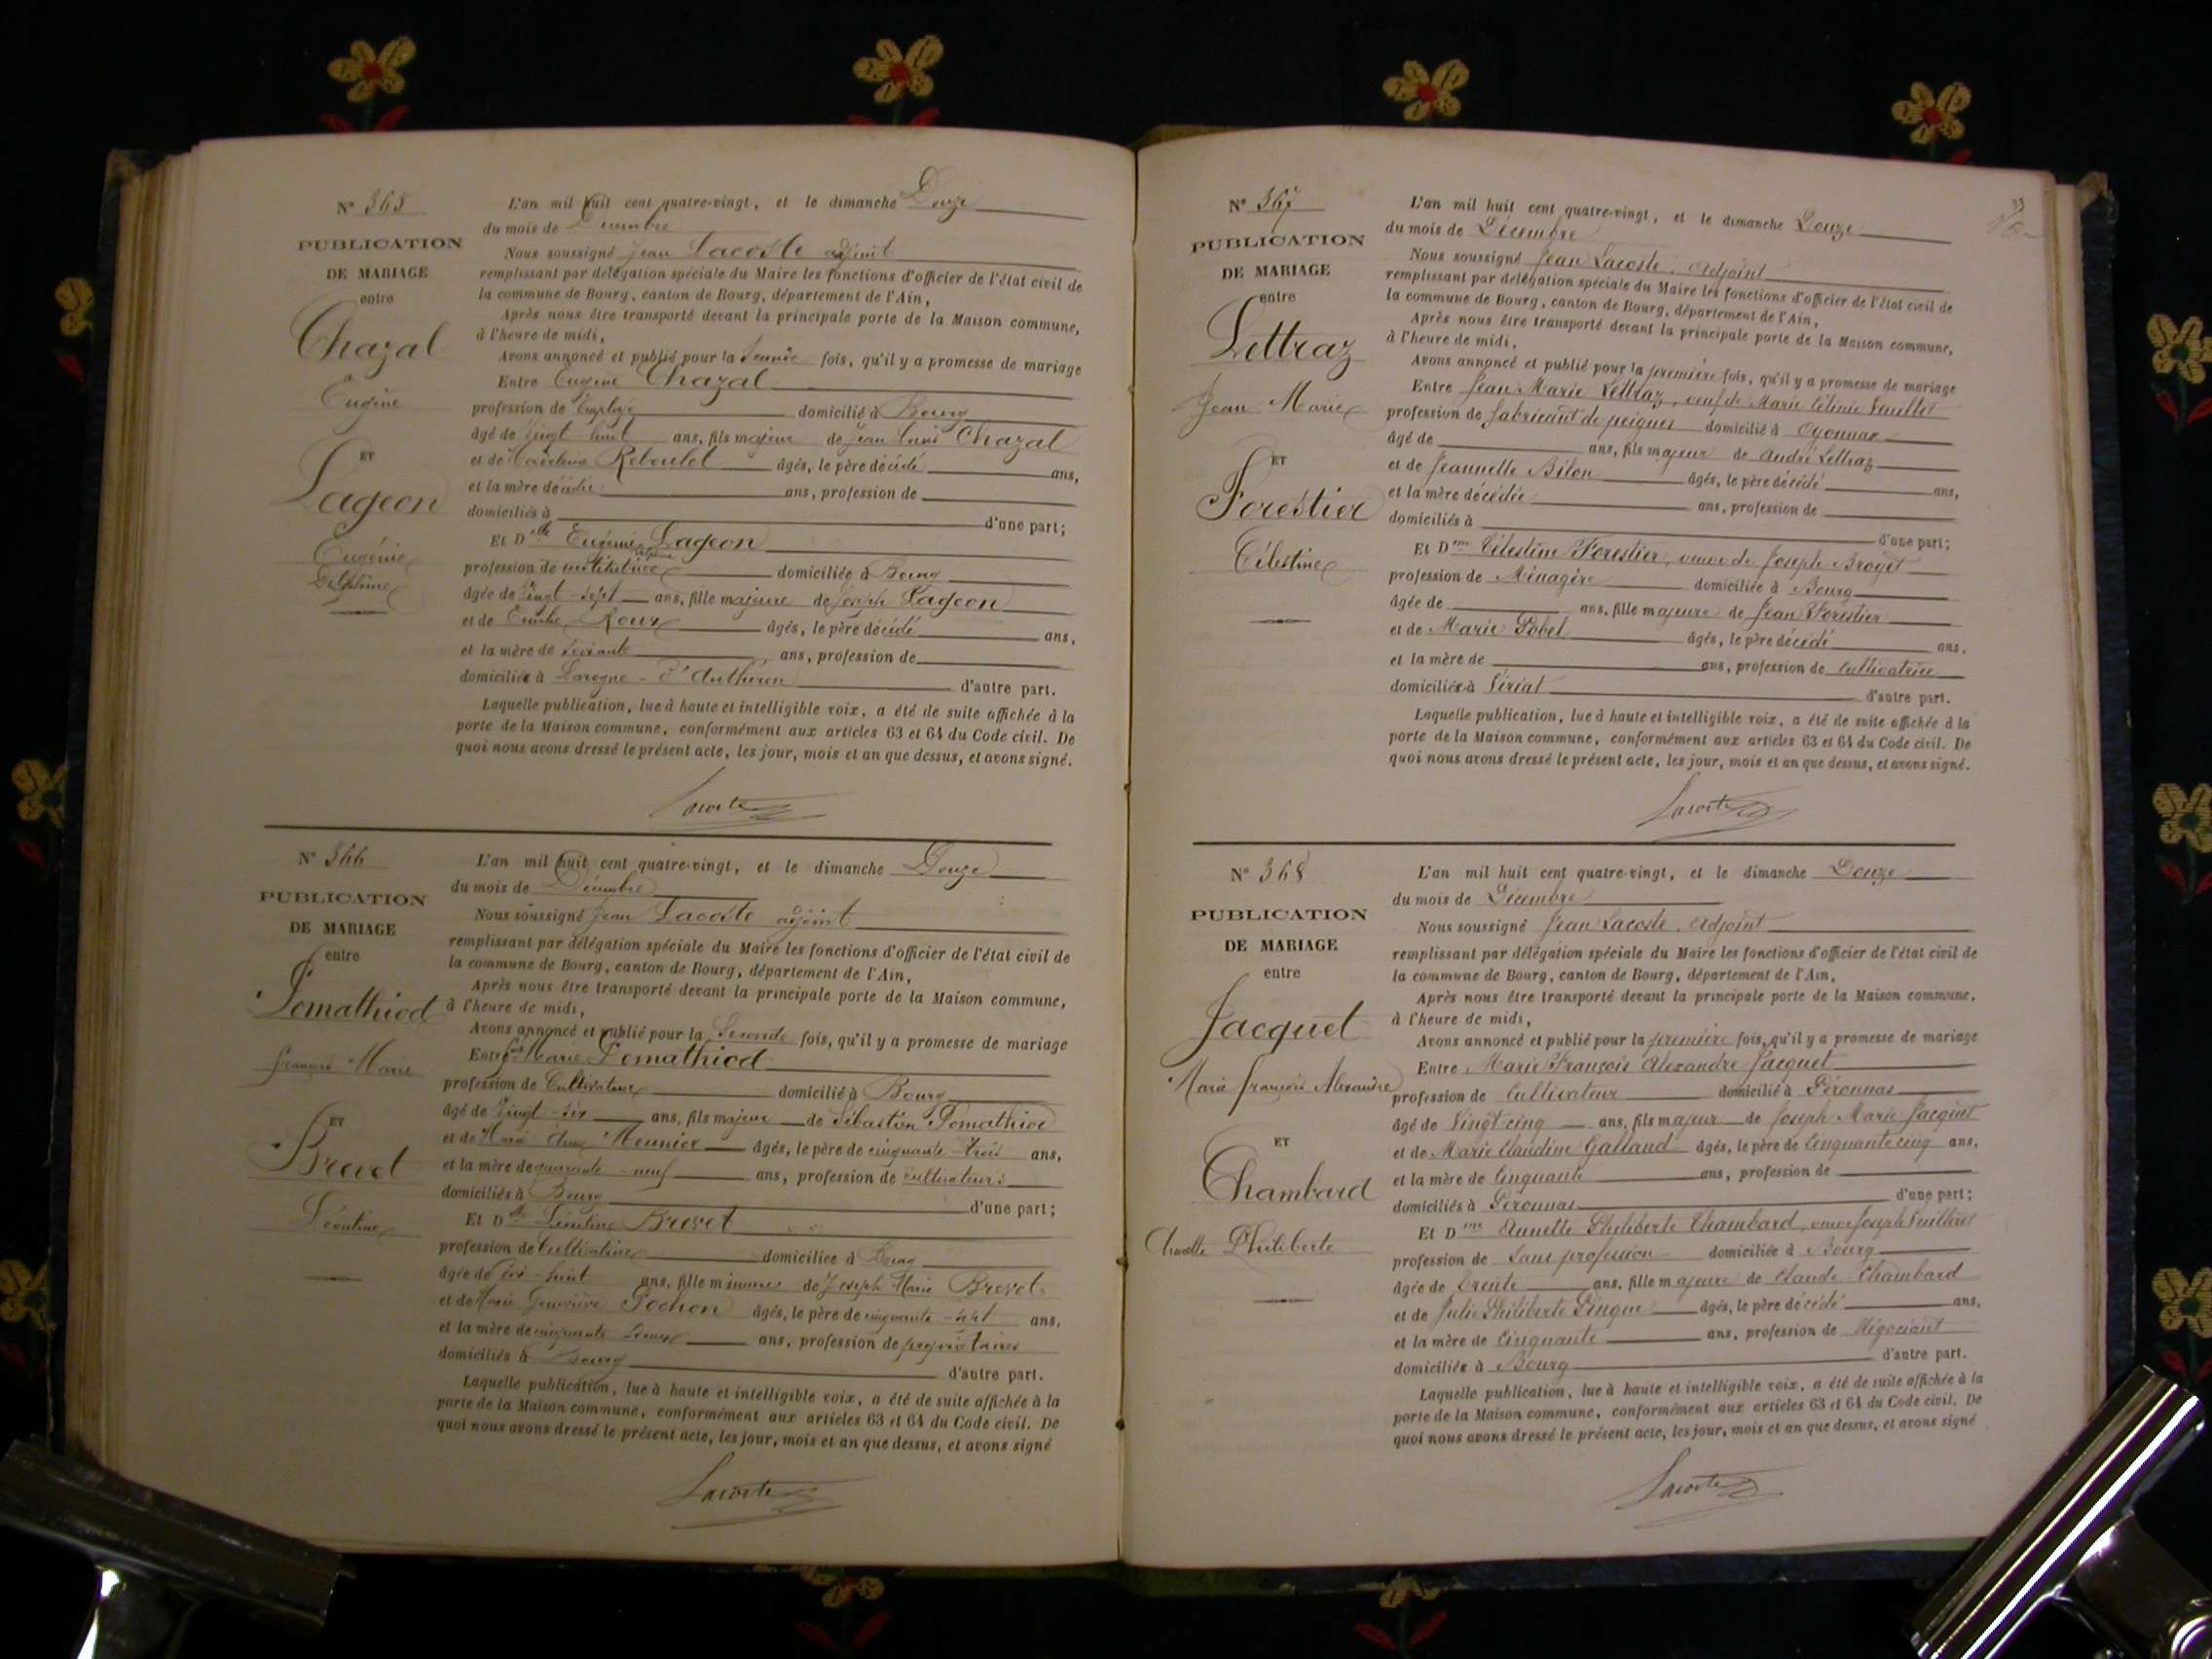 N° 365
PUBLICATION
DE MARIAGE
entre
Chazal
Eugène
ET
Lageon
Eugénie
Delphine
L'an mil huit cent quatre-vingt, et le dimanche Douze
du mois de Décembre
Nous soussigné Jean Lacoste adjoint
remplissant par délégation spéciale du Maire les fonctions d'officier de l'état civil de
la commune de Bourg, canton de Bourg, département de l'Ain,
Après nous être transporté devant la principale porte de la Maison commune,
à l'heure de midi,
Avons annoncé et publié pour la fois, qu'il y a promesse de mariage
Entre Eugène Chazal
profession de Employé domicilié à Bourg
âgé de Vingt huit ans, fils majeur de Jean Louis Chazal
et de Reboulet âgés, le père décédé ans,
et la mère décédée ans, profession de
domiciliés à d'une part;
Et Dlle Eugénie Delphine Lageon
profession de institutrice domiciliée à Bourg
âgée de Vingt-sept ans, fille majeure de Joseph Lageon
et de Roux âgés, le père décédé ans,
et la mère de ans, profession de
domiciliée à d'autre part.
Laquelle publication, lue à haute et intelligible voix, a été de suite affichée à la
porte de la Maison commune, conformément aux articles 63 et 64 du Code civil. De
quoi nous avons dressé le présent acte, les jour, mois et an que dessus, et avons signé.
Lacoste
N° 366
PUBLICATION
DE MARIAGE
entre
Pomathiod
François Marie
ET
Brevet
Léontine
L'an mil huit cent quatre-vingt, et le dimanche Douze
du mois de Décembre
Nous soussigné Jean Lacoste adjoint
remplissant par délégation spéciale du Maire les fonctions d'officier de l'état civil de
la commune de Bourg, canton de Bourg, département de l'Ain,
Après nous être transporté devant la principale porte de la Maison commune,
à l'heure de midi,
Avons annoncé et publié pour la Seconde fois, qu'il y a promesse de mariage
Entre Marie Pomathiod
profession de Cultivateur domicilié à Bourg
âgé de Vingt-six ans, fils majeur de Sébastien Pomathiod
et de Marie Meunier âgés, le père de cinquante-trois ans,
et la mère de quarante-neuf ans, profession de cultivateurs
domiciliés à Bourg d'une part;
Et Dlle Léontine Brevet
profession de Cultivatrice domiciliée à Bourg
âgée de dix-huit ans, fille mineure de Joseph Marie Brevet
et de Marie Geneviève Pochon âgés, le père de cinquante-sept ans,
et la mère de cinquante ans, profession de propriétaires
domiciliés à Bourg d'autre part.
Laquelle publication, lue à haute et intelligible voix, a été de suite affichée à la
porte de la Maison commune, conformément aux articles 63 et 64 du Code civil. De
quoi nous avons dressé le présent acte, les jour, mois et an que dessus, et avons signé
Lacoste
N° 367
PUBLICATION
DE MARIAGE
entre
Lettraz
Jean Marie
ET
Forestier
Célestine
L'an mil huit cent quatre-vingt, et le dimanche Douze
du mois de Décembre
Nous soussigné Jean Lacoste, Adjoint
remplissant par délégation spéciale du Maire les fonctions d'officier de l'état civil de
la commune de Bourg, canton de Bourg, département de l'Ain,
Après nous être transporté devant la principale porte de la Maison commune,
à l'heure de midi,
Avons annoncé et publié pour la première fois, qu'il y a promesse de mariage
Entre Jean Marie Lettraz, veuf de Marie Célinie Vuillet
profession de fabricant de peignes domicilié à Oyonnax
âgé de ans, fils majeur de André Lettraz
et de Jeannette Biton âgés, le père décédé ans,
et la mère décédée ans, profession de
domiciliés à d'une part;
Et Dme Célestine Forestier, veuve de Joseph Broyet
profession de Ménagère domiciliée à Bourg
âgée de ans, fille majeure de Jean Forestier
et de Marie Gobet âgés, le père décédé ans,
et la mère de ans, profession de Cultivatrice
domiciliée à Viriat d'autre part.
Laquelle publication, lue à haute et intelligible voix, a été de suite affichée à la
porte de la Maison commune, conformément aux articles 63 et 64 du Code civil. De
quoi nous avons dressé le présent acte, les jour, mois et an que dessus, et avons signé.
Lacoste
N° 368
PUBLICATION
DE MARIAGE
entre
Jacquet
Marie François Alexandre
ET
Chambard
Annette Philiberte
L'an mil huit cent quatre-vingt, et le dimanche Douze
du mois de Décembre
Nous soussigné Jean Lacoste, Adjoint
remplissant par délégation spéciale du Maire les fonctions d'officier de l'état civil de
la commune de Bourg, canton de Bourg, département de l'Ain,
Après nous être transporté devant la principale porte de la Maison commune,
à l'heure de midi,
Avons annoncé et publié pour la première fois, qu'il y a promesse de mariage
Entre Marie François Alexandre Jacquet
profession de Cultivateur domicilié à Péronnas
âgé de Vingt-cinq ans, fils majeur de Joseph Marie Jacquet
et de Marie Claudine Galland âgés, le père de Cinquante cinq ans,
et la mère de Cinquante ans, profession de
domiciliés à Péronnas d'une part;
Et Dme Annette Philiberte Chambard, veuve Joseph Vuillard
profession de Sans profession domiciliée à Bourg
âgée de Trente ans, fille majeure de Claude Chambard
et de Julie Philiberte Pingue âgés, le père décédé ans,
et la mère de Cinquante ans, profession de Négociant
domiciliée à Bourg d'autre part.
Laquelle publication, lue à haute et intelligible voix, a été de suite affichée à la
porte de la Maison commune, conformément aux articles 63 et 64 du Code civil. De
quoi nous avons dressé le présent acte, les jour, mois et an que dessus, et avons signé
Lacoste